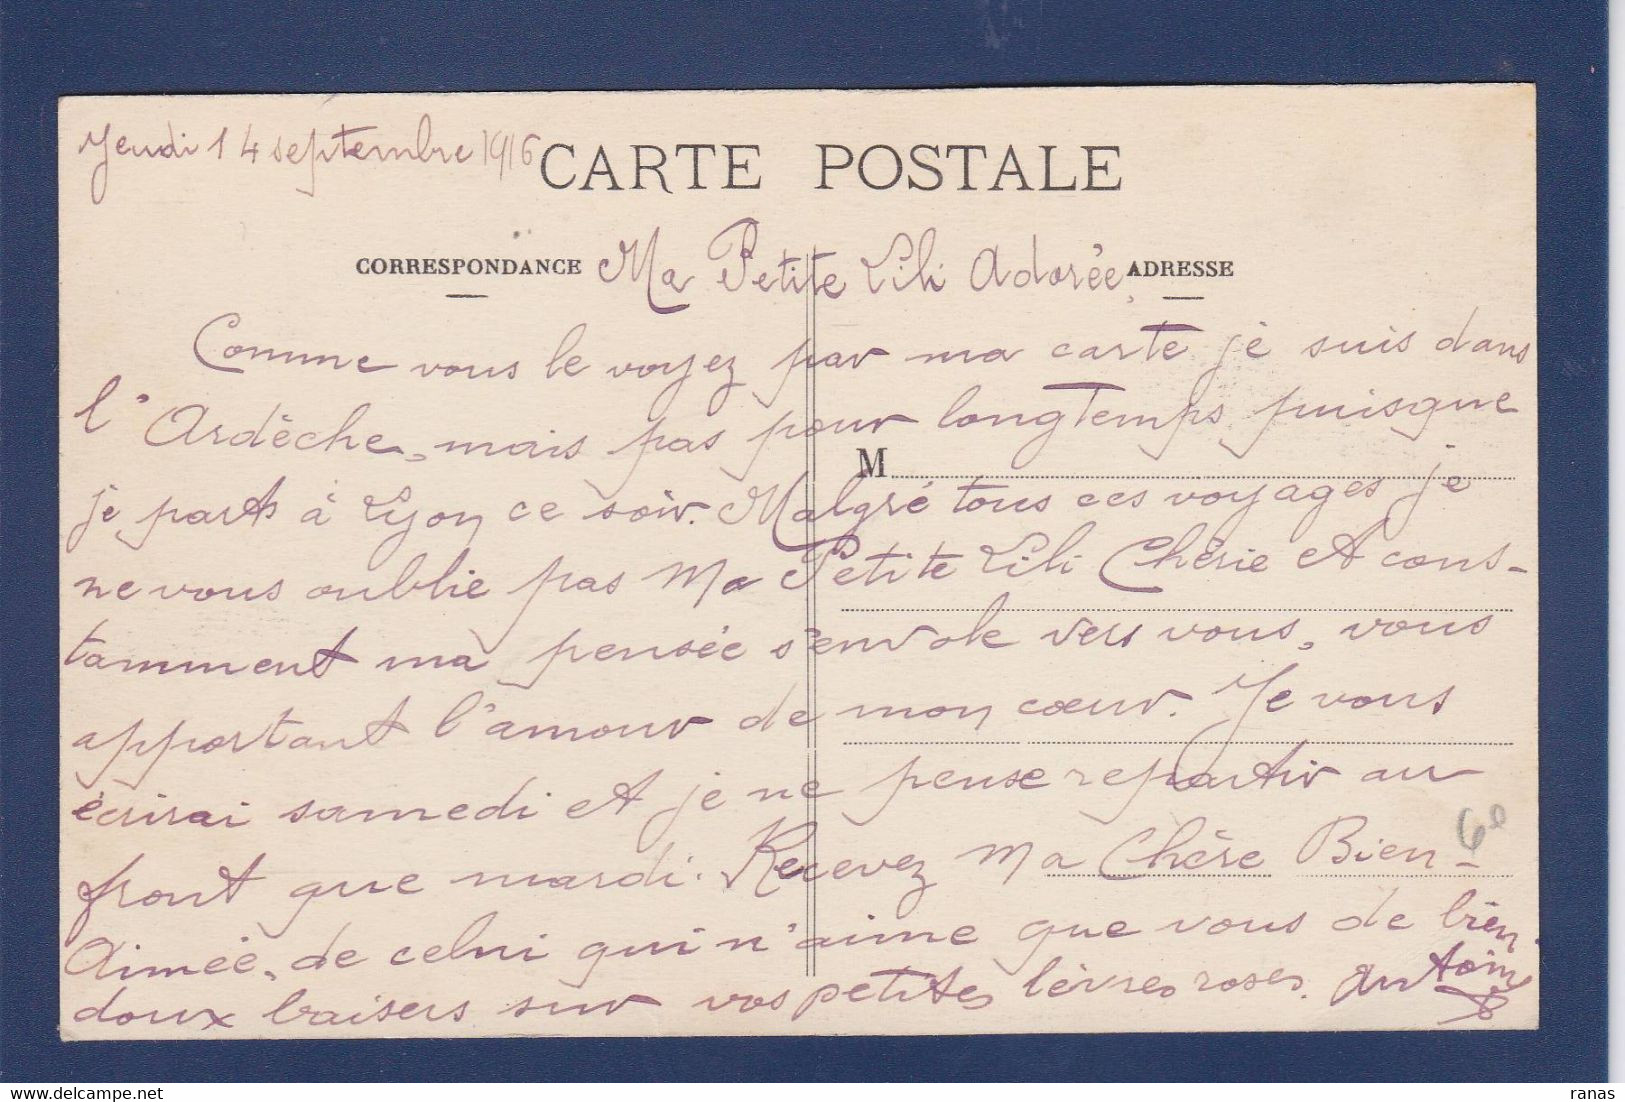 Jeudi 14 septembre 1916
CARTE POSTALE
CORRESPONDANCE
Ma Petite Lili Adorée,
ADRESSE
Comme vous le voyez par ma carte je suis dans
l'Ardèche, mais pas pour longtemps puisque
M
je parts à Lyon ce soir. Malgré tous ces voyages je
ne vous oublie pas Ma Petite Lili Chérie et cons-
tamment ma pensée s'envole vers vous, vous
apportant l'amour de mon cœur. Je vous
écrirai samedi et je ne pense repartir au
front que mardi. Recevez Ma Chère Bien-
Aimée, de celui qui n'aime que vous de bien
doux baisers sur vos petites lèvres roses. Antoine
6e
ranas